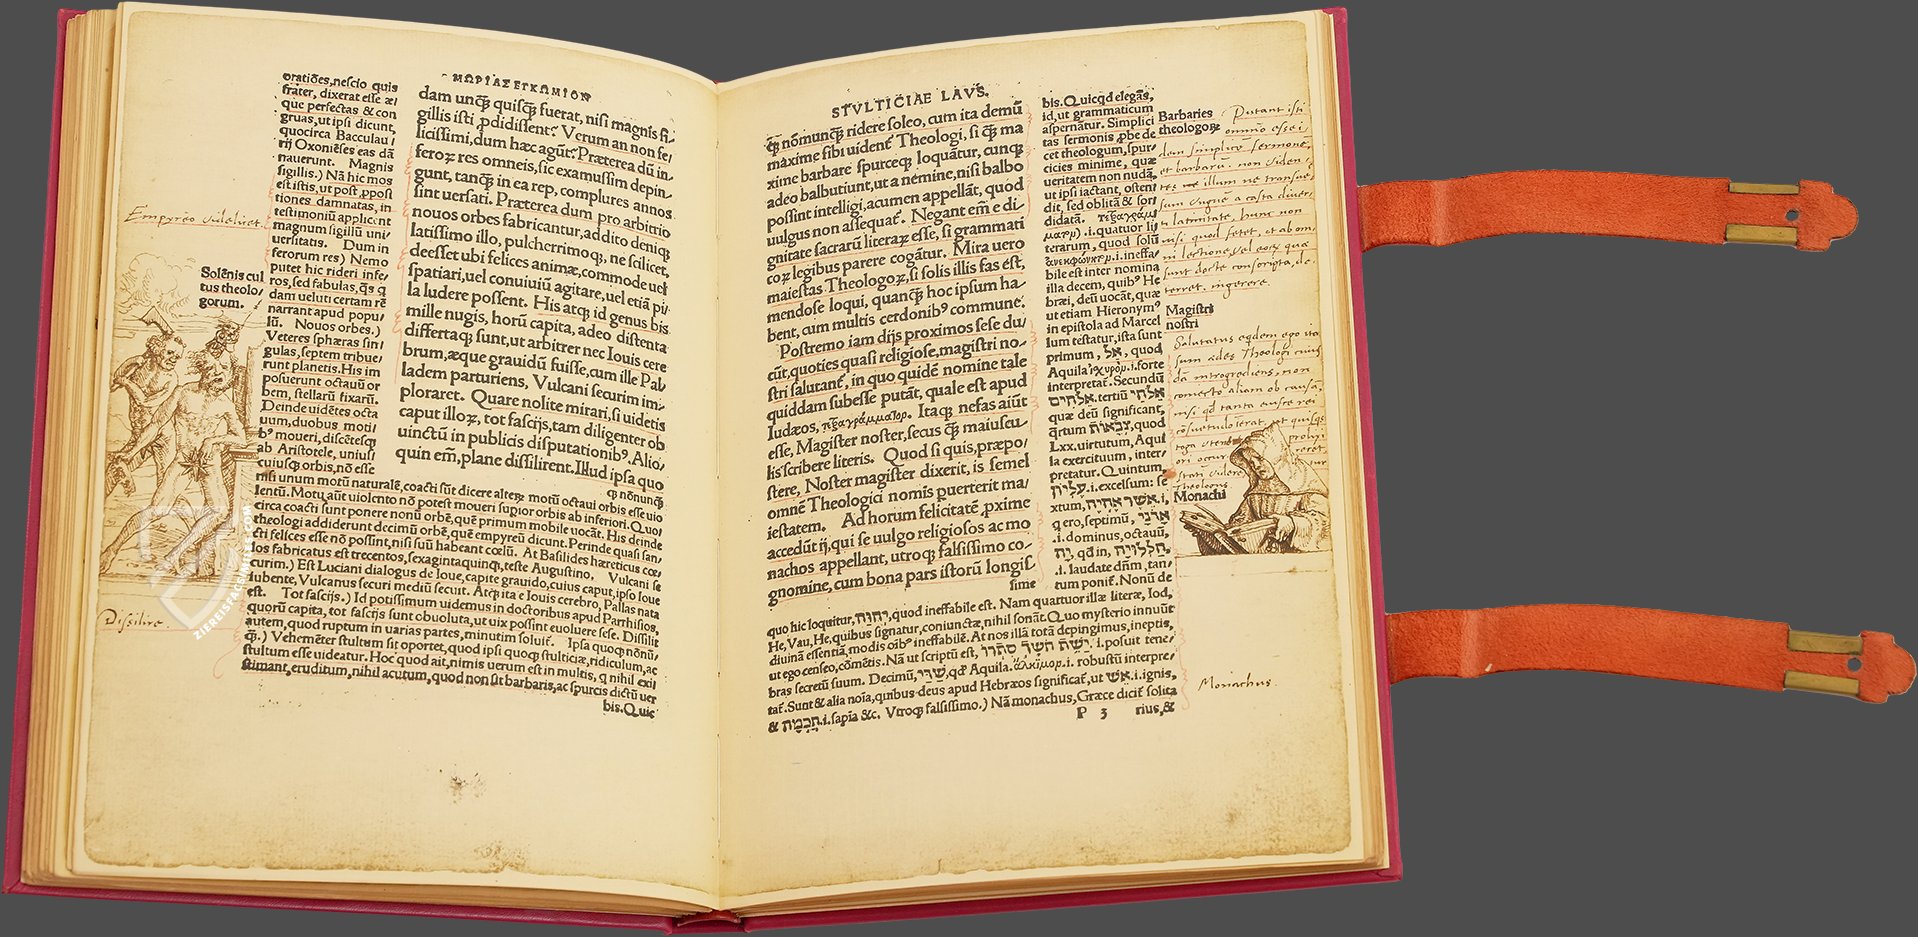 ΜΩΡΙΑΣ ΕΓΚΩΜΙΟΝ
dam unꝗ̃ quisꝗ̃ fuerat, nisi magnis si⸗
gillis isti ꝓdidissent? Verum an non fe⸗
licissimi, dum hæc agũt? Præterea dũ in⸗
feroꝝ res omneis, sic examussim depin⸗
gunt, tanꝗ̃ in ea rep, complures annos
sint uersati. Præterea dum pro arbitrio
nouos orbes fabricantur, addito deniq;
latissimo illo, pulcherrimoq;, ne scilicet,
deesset ubi felices animæ, commode uel
spatiari, uel conuiuiũ agitare, uel etiã pi⸗
la ludere possent. His atq; id genus bis
mille nugis, horũ capita, adeo distenta
differtaq; sunt, ut arbitrer nec Iouis cere
brum, æque grauidũ fuisse, cum ille Pal⸗
ladem parturiens, Vulcani securim im⸗
ploraret. Quare nolite mirari, si uidetis
caput illoꝝ, tot fascijs, tam diligenter ob
uinctũ in publicis disputationibꝰ. Alio⸗
quin em̃, plane dissilirent. Illud ipsa quo
ꝗ nõnunꝗ̃
oratiões, nescio quis
frater, dixerat esse æ⸗
que perfectas & con
gruas, ut ipsi dicunt,
quocirca Bacculau⸗
rij Oxoniẽses eas dã
nauerunt. Magnis
sigillis.) Nã hic mos
est istis, ut post ꝓposi
tiones damnatas, in
testimoniũ applicent
magnum sigillũ uni⸗
uersitatis. Dum in
ferorum res) Nemo
putet hic rideri infe⸗
ros, sed fabulas, ꝗ̃s ꝗ
dam ueluti certam rẽ
narrant apud popu⸗
lũ. Nouos orbes.)
Veteres sphæras sin⸗
gulas, septem tribue⸗
runt planetis. His im
posuerunt octauũ or
bem, stellarũ fixarũ.
Deinde uidẽtes octa
uum, duobus moti⸗
bꝰ moueri, discẽtesq;
ab Aristotele, uniusi
cuiusq; orbis, nõ esse
nisi unum motũ naturalẽ, coacti sũt dicere alteꝝ motũ octaui orbis esse uio
lentũ. Motꝰ aũt uiolento nõ potest moueri suꝑior orbis ab inferiori. Quo⸗
circa coacti sunt ponere nonũ orbẽ, quẽ primum mobile uocãt. His deinde
theologi addiderunt decimũ orbẽ, quẽ empyreũ dicunt. Perinde quasi san⸗
cti felices esse nõ possint, nisi suũ habeant cœlũ. At Basilides hæreticus cœ⸗
los fabricatus est trecentos, sexagintaquinq;, teste Augustino. Vulcani se
curim.) Est Luciani dialogus de Ioue, capite grauido, cuius caput, ipso Ioue
iubente, Vulcanus securi mediũ secuit. Atq; ita e Iouis cerebro, Pallas nata
est. Tot fascijs.) Id potissimum uidemus in doctoribus apud Parrhisios,
quorũ capita, tot fascijs sunt obuoluta, ut uix possint euoluere sese. Dissilit
autem, quod ruptum in uarias partes, minutim soluit̃. Ipsa quoq; nõnũ⸗
ꝗ̃.) Vehemẽter stultum sit oportet, quod ipsi quoq; stulticiæ, ridiculum, ac
stultum esse uideatur. Hoc quod ait, nimis uerum est in multis, ꝗ nihil exi⸗
stimant, eruditum, nihil acutum, quod non sit barbaris, ac spurcis dictũ uer
bis. Quic
Empyreũ
Solẽnis cul
tus theolo⸗
gorum.
Dissilire.
ZIEREISFACSIMILES.COM
STVLTICIAE LAVS.
ꝗ̃ nõmunꝗ̃ ridere soleo, cum ita demũ
maxime sibi uident̃ Theologi, si ꝗ̃ ma
xime barbare spurceq; loquãtur, cunq;
adeo balbutiunt, ut a nemine, nisi balbo
possint intelligi, acumen appellãt, quod
uulgus non assequat̃. Negant em̃ e di⸗
gnitate sacrarũ literaꝝ esse, si grammati
coꝝ legibus parere cogãtur. Mira uero
maiestas Theologoꝝ, si solis illis fas est,
mendose loqui, quanꝗ̃ hoc ipsum ha⸗
bent, cum multis cerdonibꝰ commune.
Postremo iam dijs proximos sese du⸗
cũt, quoties quasi religiose, magistri no⸗
stri salutant̃, in quo quidẽ nomine tale
quiddam subesse putãt, quale est apud
Iudæos, τετραγράμματον. Itaq; nefas aiũt
esse, Magister noster, secus ꝗ̃ maiuscu⸗
lis scribere literis. Quod si quis, præpo⸗
stere, Noster magister dixerit, is semel
omnẽ Theologici nomis ꝑuerterit ma⸗
iestatem. Ad horum felicitatẽ, ꝓxime
accedũt ij, qui se uulgo religiosos ac mo
nachos appellant, utroq; falsissimo co⸗
gnomine, cum bona pars istorũ longis⸗
sime
bis. Quicꝗd elegãs,
id, ut grammaticum
aspernãtur. Simplici
tas sermonis, ꝓbe de
cet theologum, spur⸗
cicies minime, quæ
ueritatem non nudã,
ut ipsi iactant, ostẽni
dit, sed oblitã & sori
didatã. τετραγράμ
ματον) .i. quatuor lit
terarum, quod solũ
ἀνεκφώνητον .i. ineffa⸗
bile est inter nomina
illa decem, quibꝰ He
bræi, deũ uocãt, quæ
ut etiam Hieronymꝰ
in epistola ad Marcel
lum testatur, ista sunt
primum, אל, quod
Aquila ἰχυρὸν .i. forte
interpretat̃. Secundũ
אלהי tertiũ אלהים
quæ deũ significant,
ꝗrtum צבאות, quod
Lxx. uirtutum, Aqui
la exercituum, inter⸗
pretatur. Quintum,
עליון .i. excelsum: se
xtum, אשר אהיה, .i.
ꝗ ero, septimũ, אדני
.i. dominus, octauũ,
יה, ꝗd in, הללויה.
.i. laudate dñm, tan⸗
tum ponit̃. Nonũ de
quo hic loquitur, יהוה, quod ineffabile est. Nam quartuor illæ literæ, Iod,
He, Vau, He, quibus signatur, coniunctæ, nihil sonãt. Quo mysterio innuũt
diuinã essentiã, modis oibꝰ ineffabilẽ. At nos illã totã depingimus, ineptis,
ut ego censeo, cõmẽtis. Nã ut scriptũ est, ישת חשך סתרו .i. posuit tene⸗
bras secretũ suum. Decimũ, שדי, qd̃ Aquila. ἄλκιμον .i. robustũ interpre⸗
tat̃. Sunt & alia noĩa, quibus deus apud Hebræos significat̃, ut אש .i. ignis,
& חכמה .i. sapĩa &c. Vtroq; falsissimo.) Nã monachus, Græce dicit̃ solita
P 3 rius, &
Barbaries
theologoꝝ
Putant isti
omnino esse i⸗
dem simplicẽ sermonẽ,
et barbarũ. non viden⸗
Magistri
nostri
Monachi
Monachus.